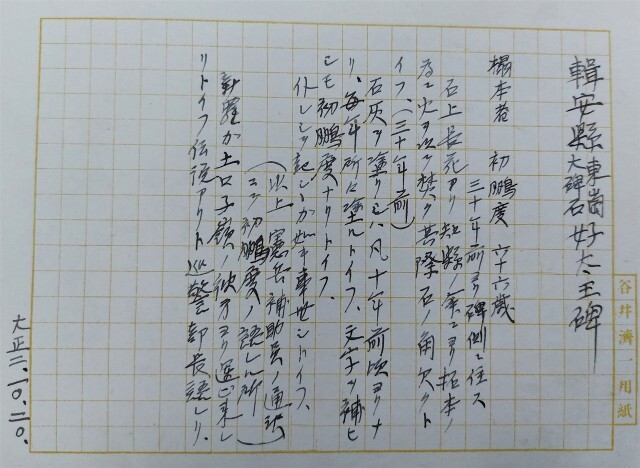 輯安縣東崗 好太王碑
大碑石
搨本者 初鵬度 六十六歳
三十年前ヨリ碑側ニ住ス
石上長苑アリ知縣ノ命ニヨリ拓本ノ
為ニ火ヲ以テ焚ク其際石ノ角欠クト
イフ、(三十年前)
石灰ヲ塗リシハ凡十年前頃ヨリナ
リ、毎年所々塗ルトイフ、文字ヲ補ヒ
シモ初鵬度ナリトイフ、
記シ 事世シトイフ、
(以上 憲兵補助員ノ通訳
ニテ初鵬度ノ語レル所)
新羅カ土口子嶺ノ彼方ヨリ運ビ来レ
リトイフ伝説アリト巡警部長語レリ、
大正二、一〇、二〇、
谷井濟一用紙